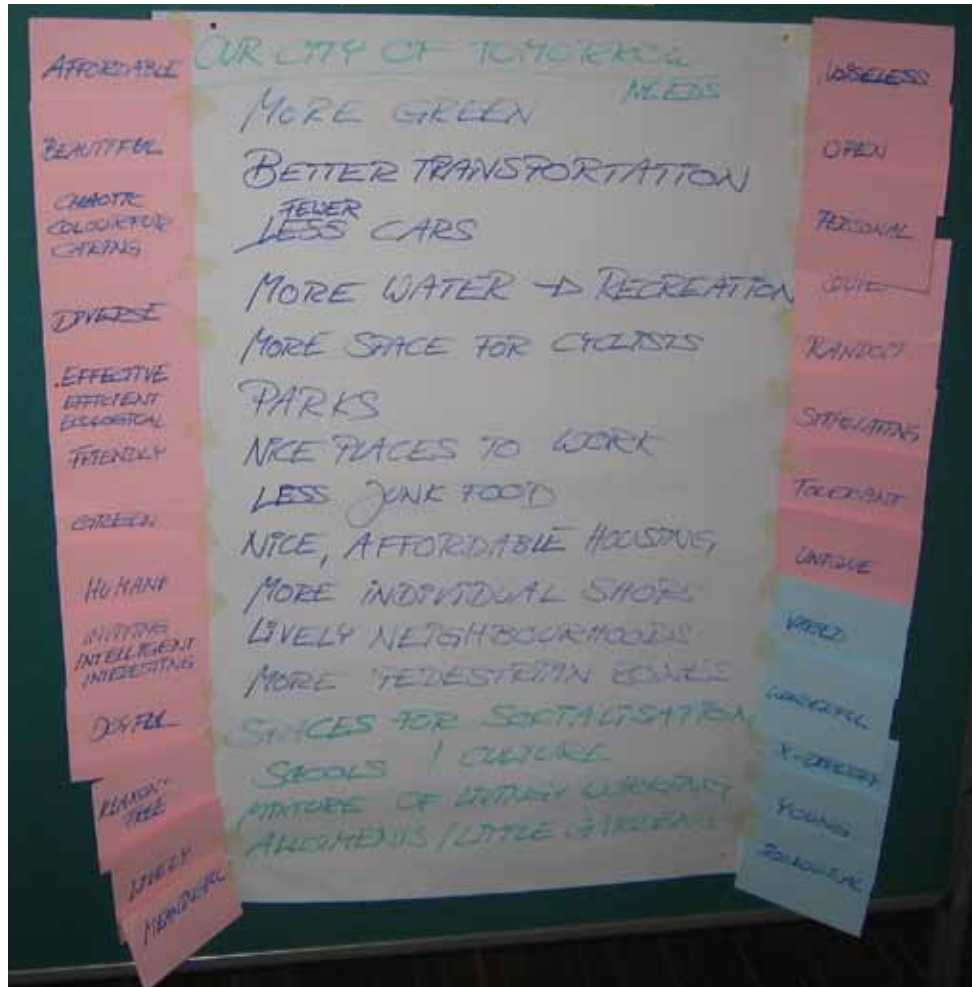 AFFORDABLE
BEAUTIFUL
CHAOTIC
COLOURFUL
CARING
DIVERSE
EFFECTIVE
EFFICIENT
ECOLOGICAL
FRIENDLY
GREEN
HUMANE
INVITING
INTELLIGENT
INTERESTING
JOYFUL
LIVELY
OUR CITY OF TOMORROW
NEEDS
MORE GREEN
BETTER TRANSPORTATION
FEWER
LESS CARS
MORE WATER → RECREATION
MORE SPACE FOR CYCLISTS
PARKS
NICE PLACES TO WORK
LESS JUNK FOOD
NICE, AFFORDABLE HOUSING
MORE INDIVIDUAL SHOPS
LIVELY NEIGHBOURHOODS
MORE PEDESTRIAN
SPACES FOR SOCIALISATION
SCOOLS / CULTURE
MIXTURE OF LIVING + WORKING
ALLOTMENTS / LITTLE GARDENS
NOISELESS
OPEN
PERSONAL
RANDOM
TOLERANT
UNIQUE
VARIED
WONDERFUL
YOUNG